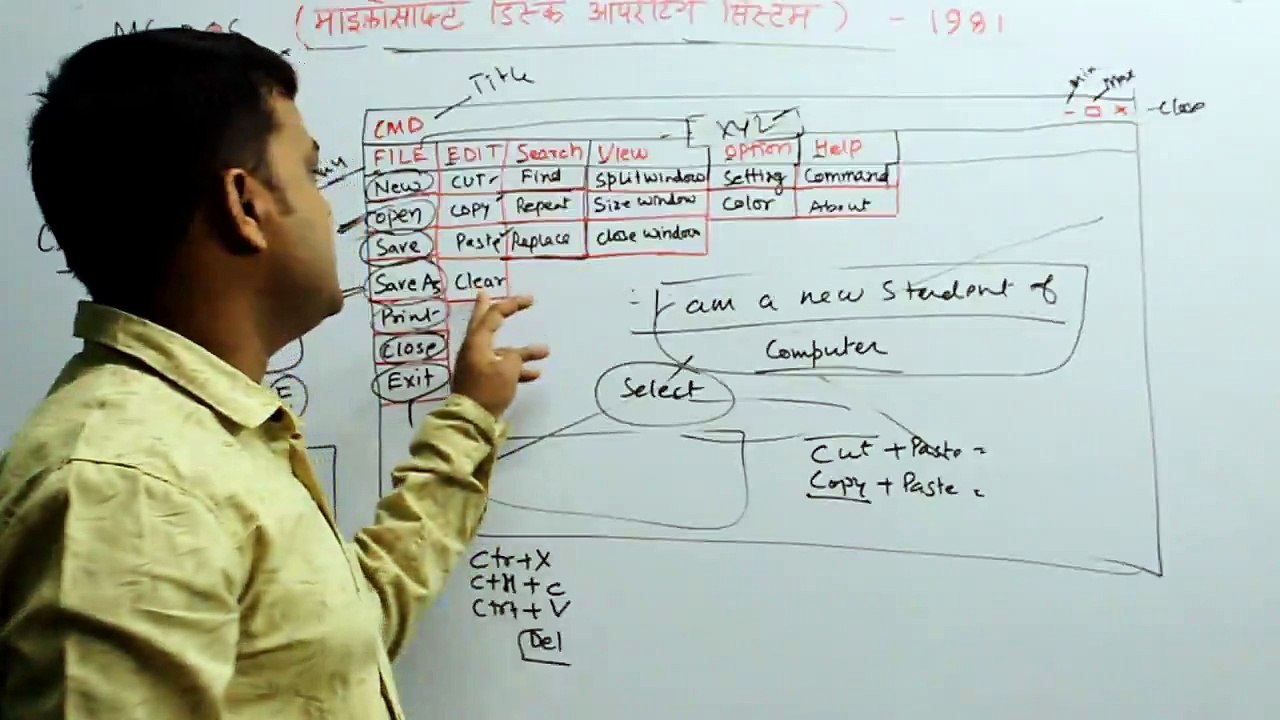 (माइक्रोसॉफ्ट डिस्क आपरेटिंग सिस्टम) - 1981
Title
Min Max
CMD XYZ - □ × - Close
FILE EDIT Search View Option Help
New CUT Find Splitwindow Setting Command
Open COPY Repeat Size window Color About
Save Paste Replace Close window
Save As Clear
I am a new Student of
Print
Close Computer
Exit Select
E
Cut + Paste =
Copy + Paste =
Ctr+X
Ctrl + C
Ctrl + V
Del